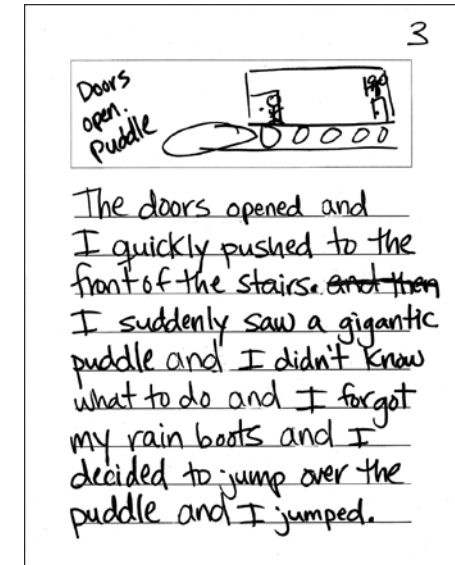 3
Doors
open.
Puddle
The doors opened and
I quickly pushed to the
front of the stairs. and then
I suddenly saw a gigantic
puddle and I didn't know
what to do and I forgot
my rain boots and I
decided to jump over the
puddle and I jumped.